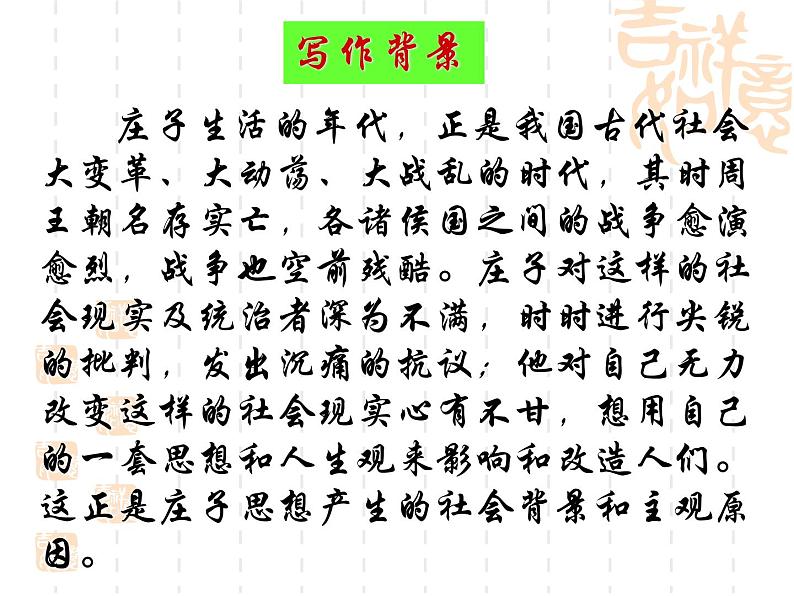 写作背景
吉祥如意
庄子生活的年代，正是我国古代社会
大变革、大动荡、大战乱的时代，其时周
王朝名存实亡，各诸侯国之间的战争愈演
愈烈，战争也空前残酷。庄子对这样的社
会现实及统治者深为不满，时时进行尖锐
的批判，发出沉痛的抗议；他对自己无力
改变这样的社会现实心有不甘，想用自己
的一套思想和人生观来影响和改造人们。
这正是庄子思想产生的社会背景和主观原
因。